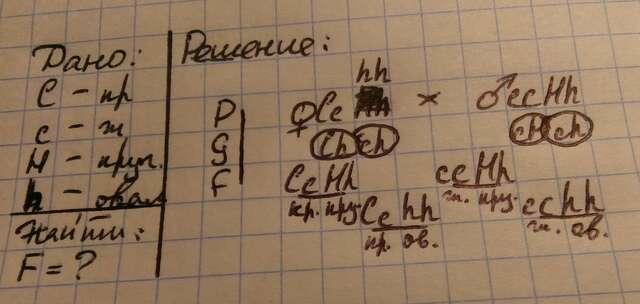 Дано:
C - кр
c - ж
H - круг.
h - овал
Найти:
F = ?
Решение:
hh
P ♀Cc × ♂ccHh
G Ch ch cH ch
F CcHh ccHh
кр. круг ж. круг.
Cchh cchh
кр. ов. ж. ов.